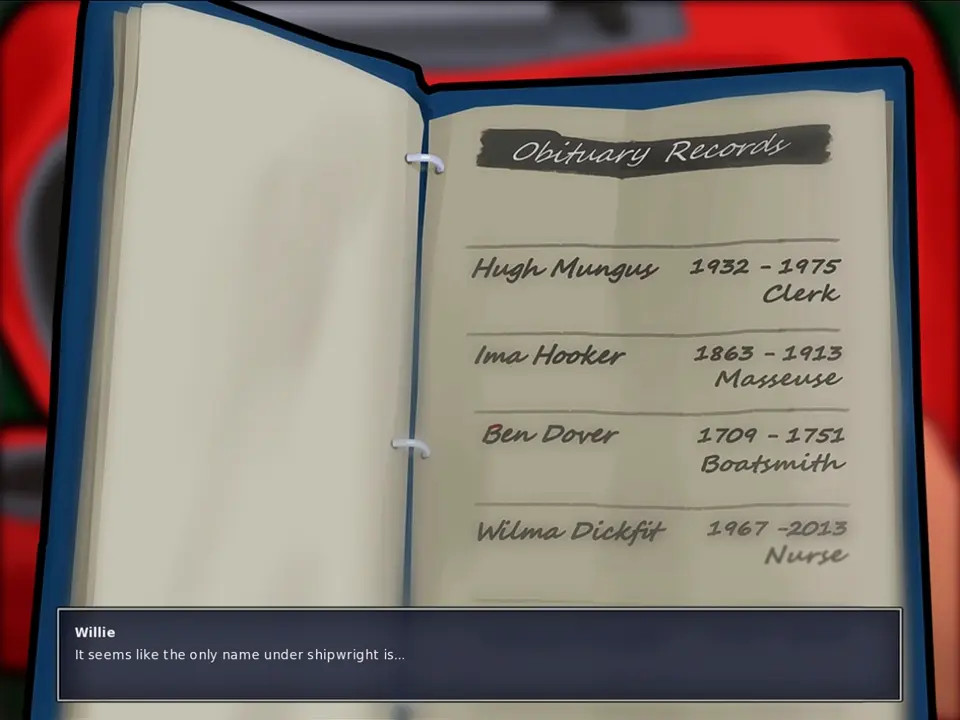 Obituary Records
Hugh Mungus 1932 - 1975
Clerk
Ima Hooker 1863 - 1913
Masseuse
Ben Dover 1709 - 1751
Boatsmith
Wilma Dickfit 1967 -2013
Nurse
Willie
It seems like the only name under shipwright is...